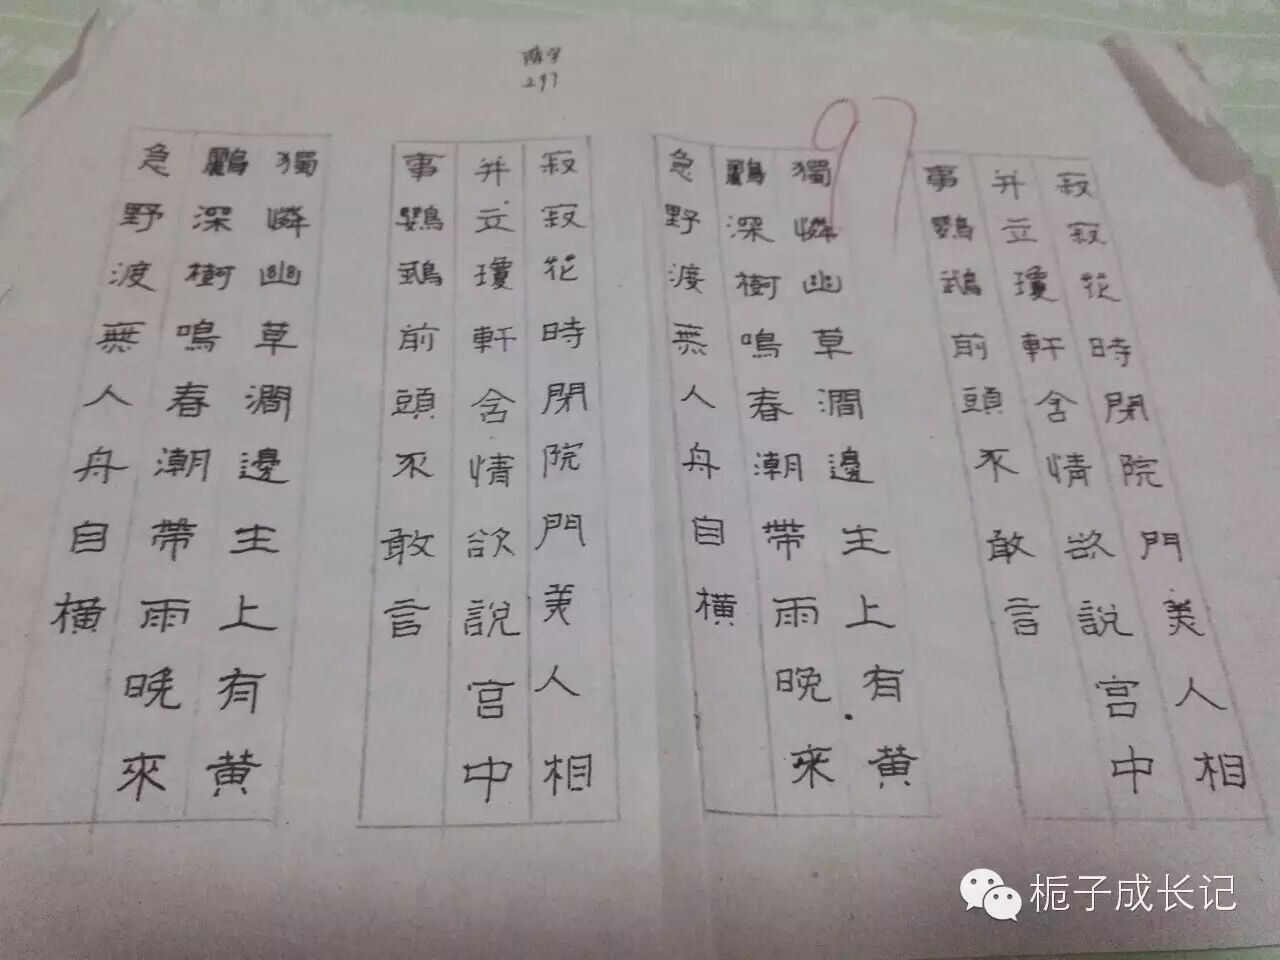 297
97
寂寂花時閉院門美人相
并立瓊軒含情欲説宫中
事鸚鵡前頭不敢言
獨憐幽草澗邊生上有黄
鸝深樹鳴春潮帶雨晚來
急野渡無人舟自横
寂寂花時閉院門美人相
并立瓊軒含情欲説宫中
事鸚鵡前頭不敢言
獨憐幽草澗邊生上有黄
鸝深樹鳴春潮帶雨晚來
急野渡無人舟自横
栀子成长记